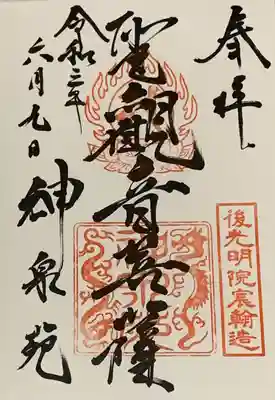 奉拝
後光明院宸翰造
聖観音菩薩
令和三年
六月九日
神泉苑